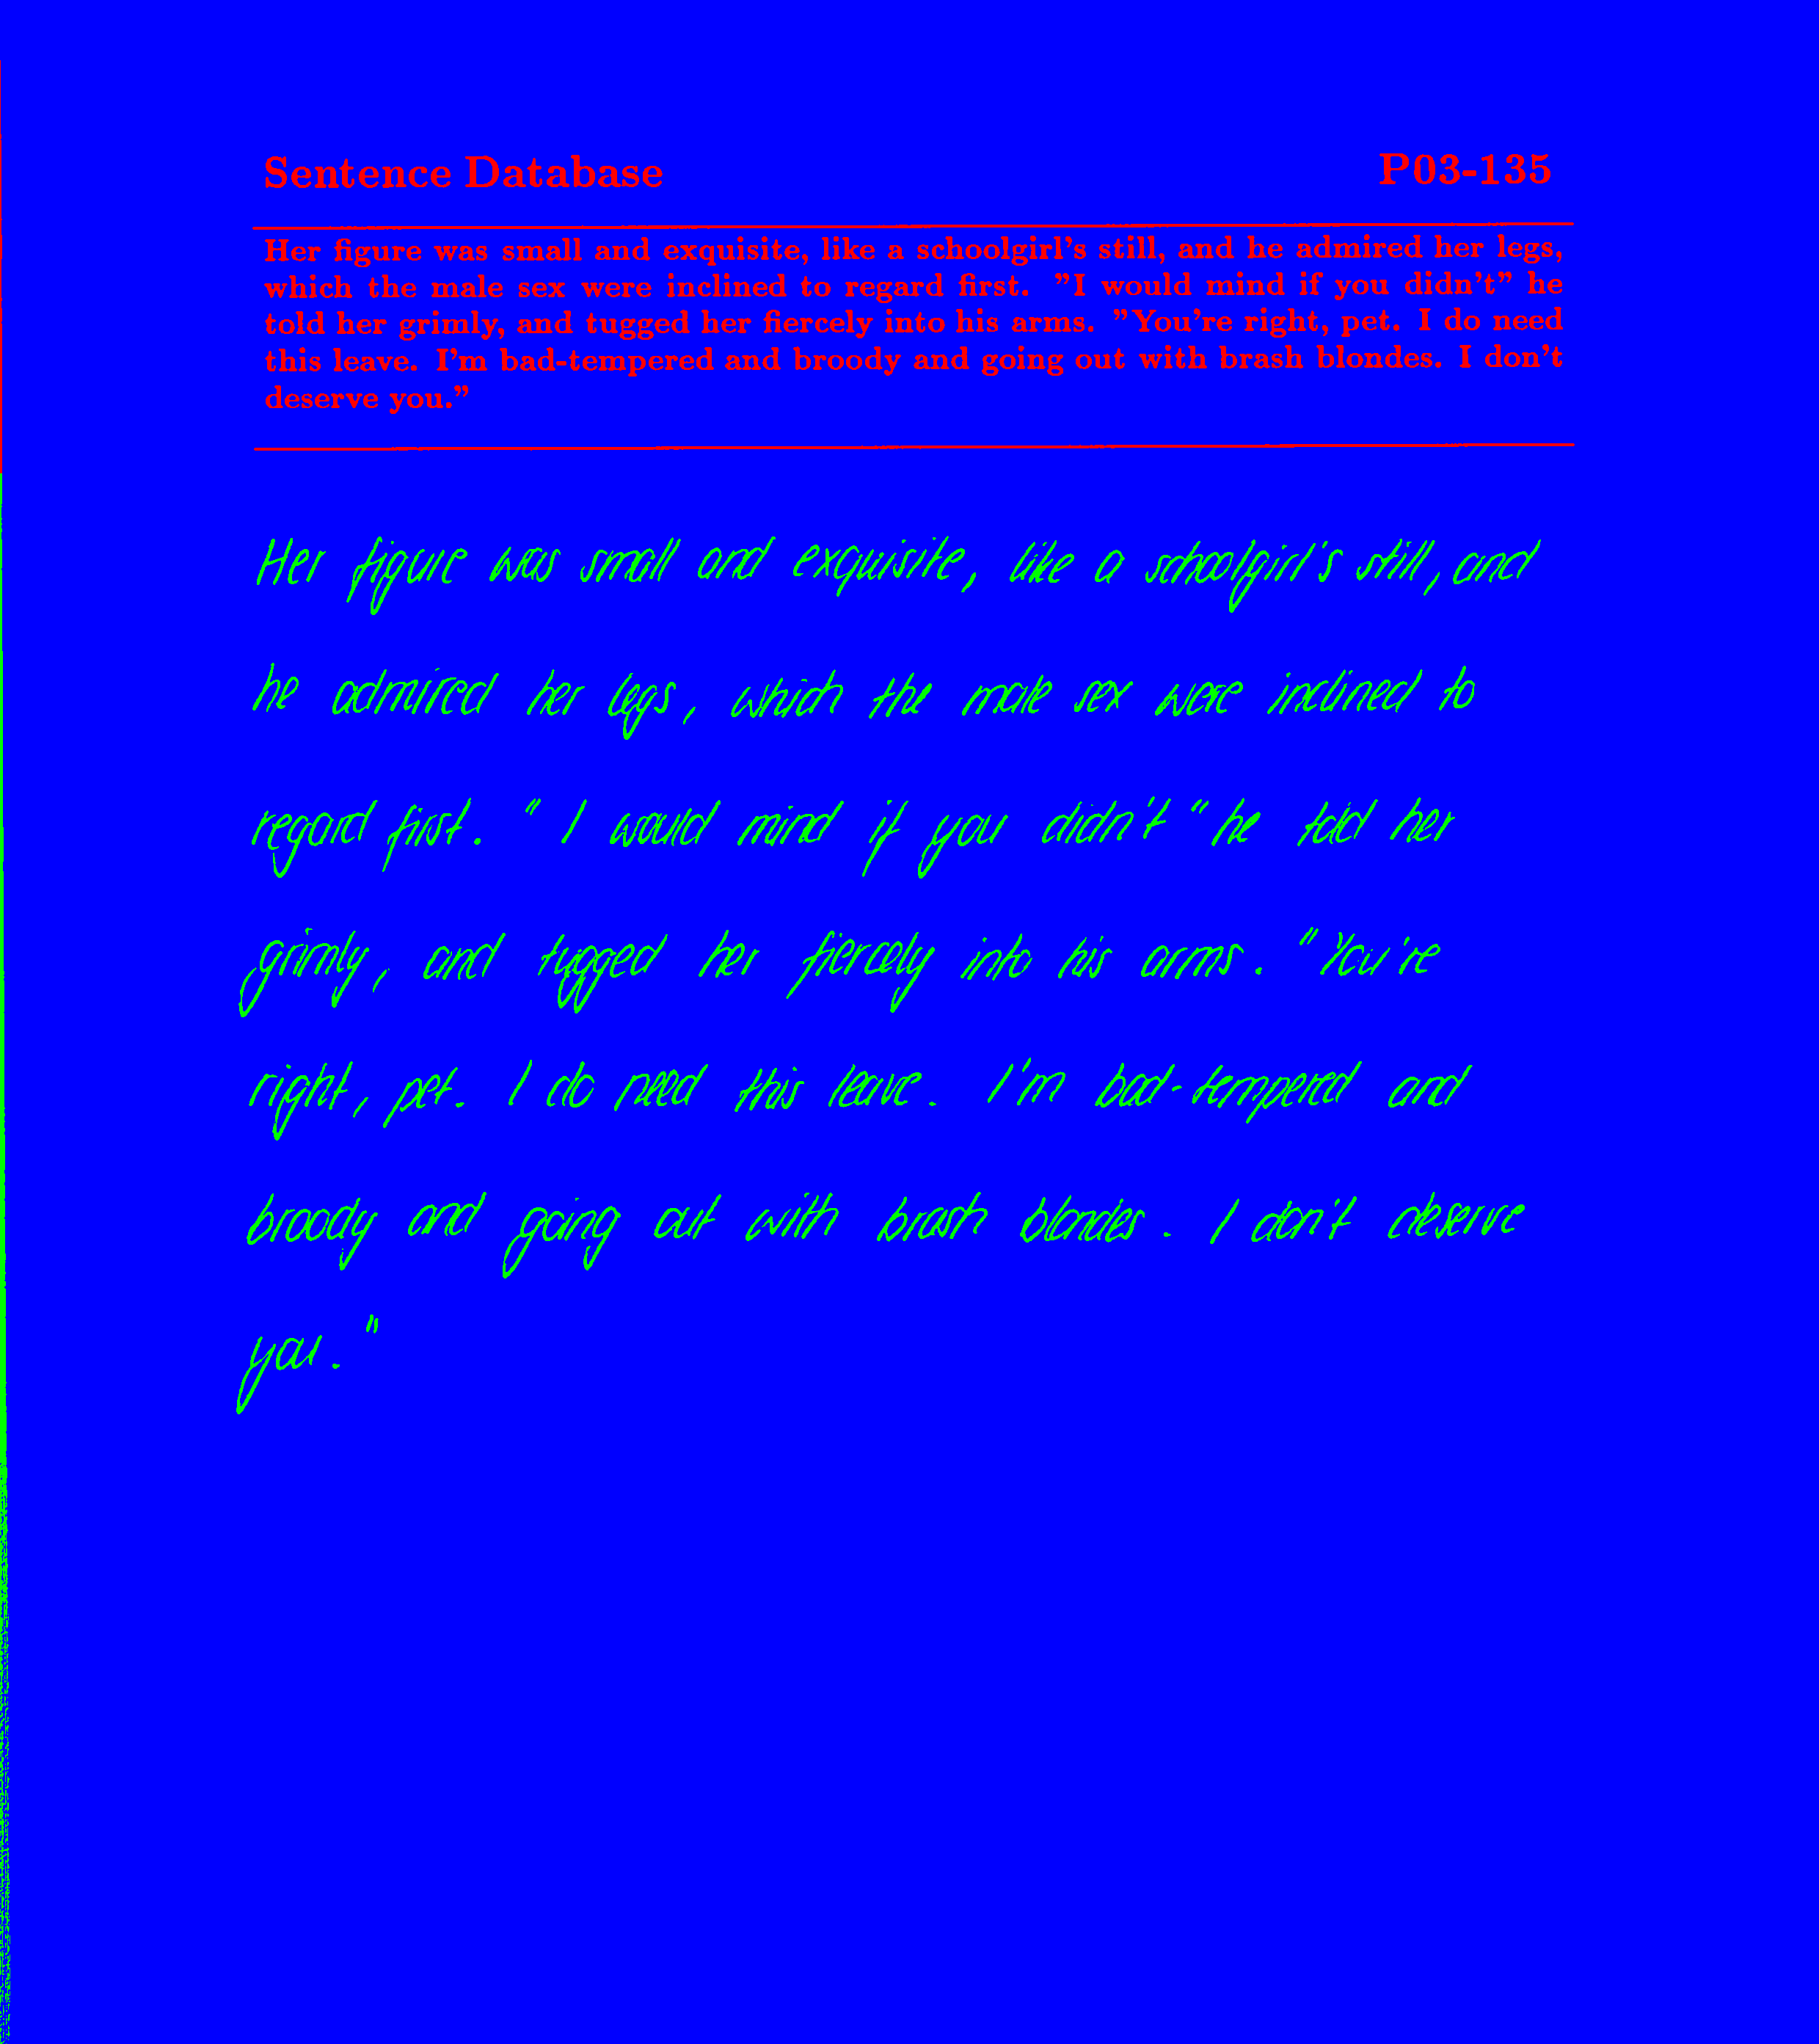 Sentence Database P03-135
Her figure was small and exquisite, like a schoolgirl's still, and he admired her legs,
which the male sex were inclined to regard first. "I would mind if you didn't" he
told her grimly, and tugged her fiercely into his arms. "You're right, pet. I do need
this leave. I'm bad-tempered and broody and going out with brash blondes. I don't
deserve you."
Her figure was small and exquisite, like a schoolgirl's still, and
he admired her legs, which the male sex were inclined to
regard first. "I would mind if you didn't" he told her
grimly, and tugged her fiercely into his arms. "You're
right, pet. I do need this leave. I'm bad-tempered and
broody and going out with brash blondes. I don't deserve
you."